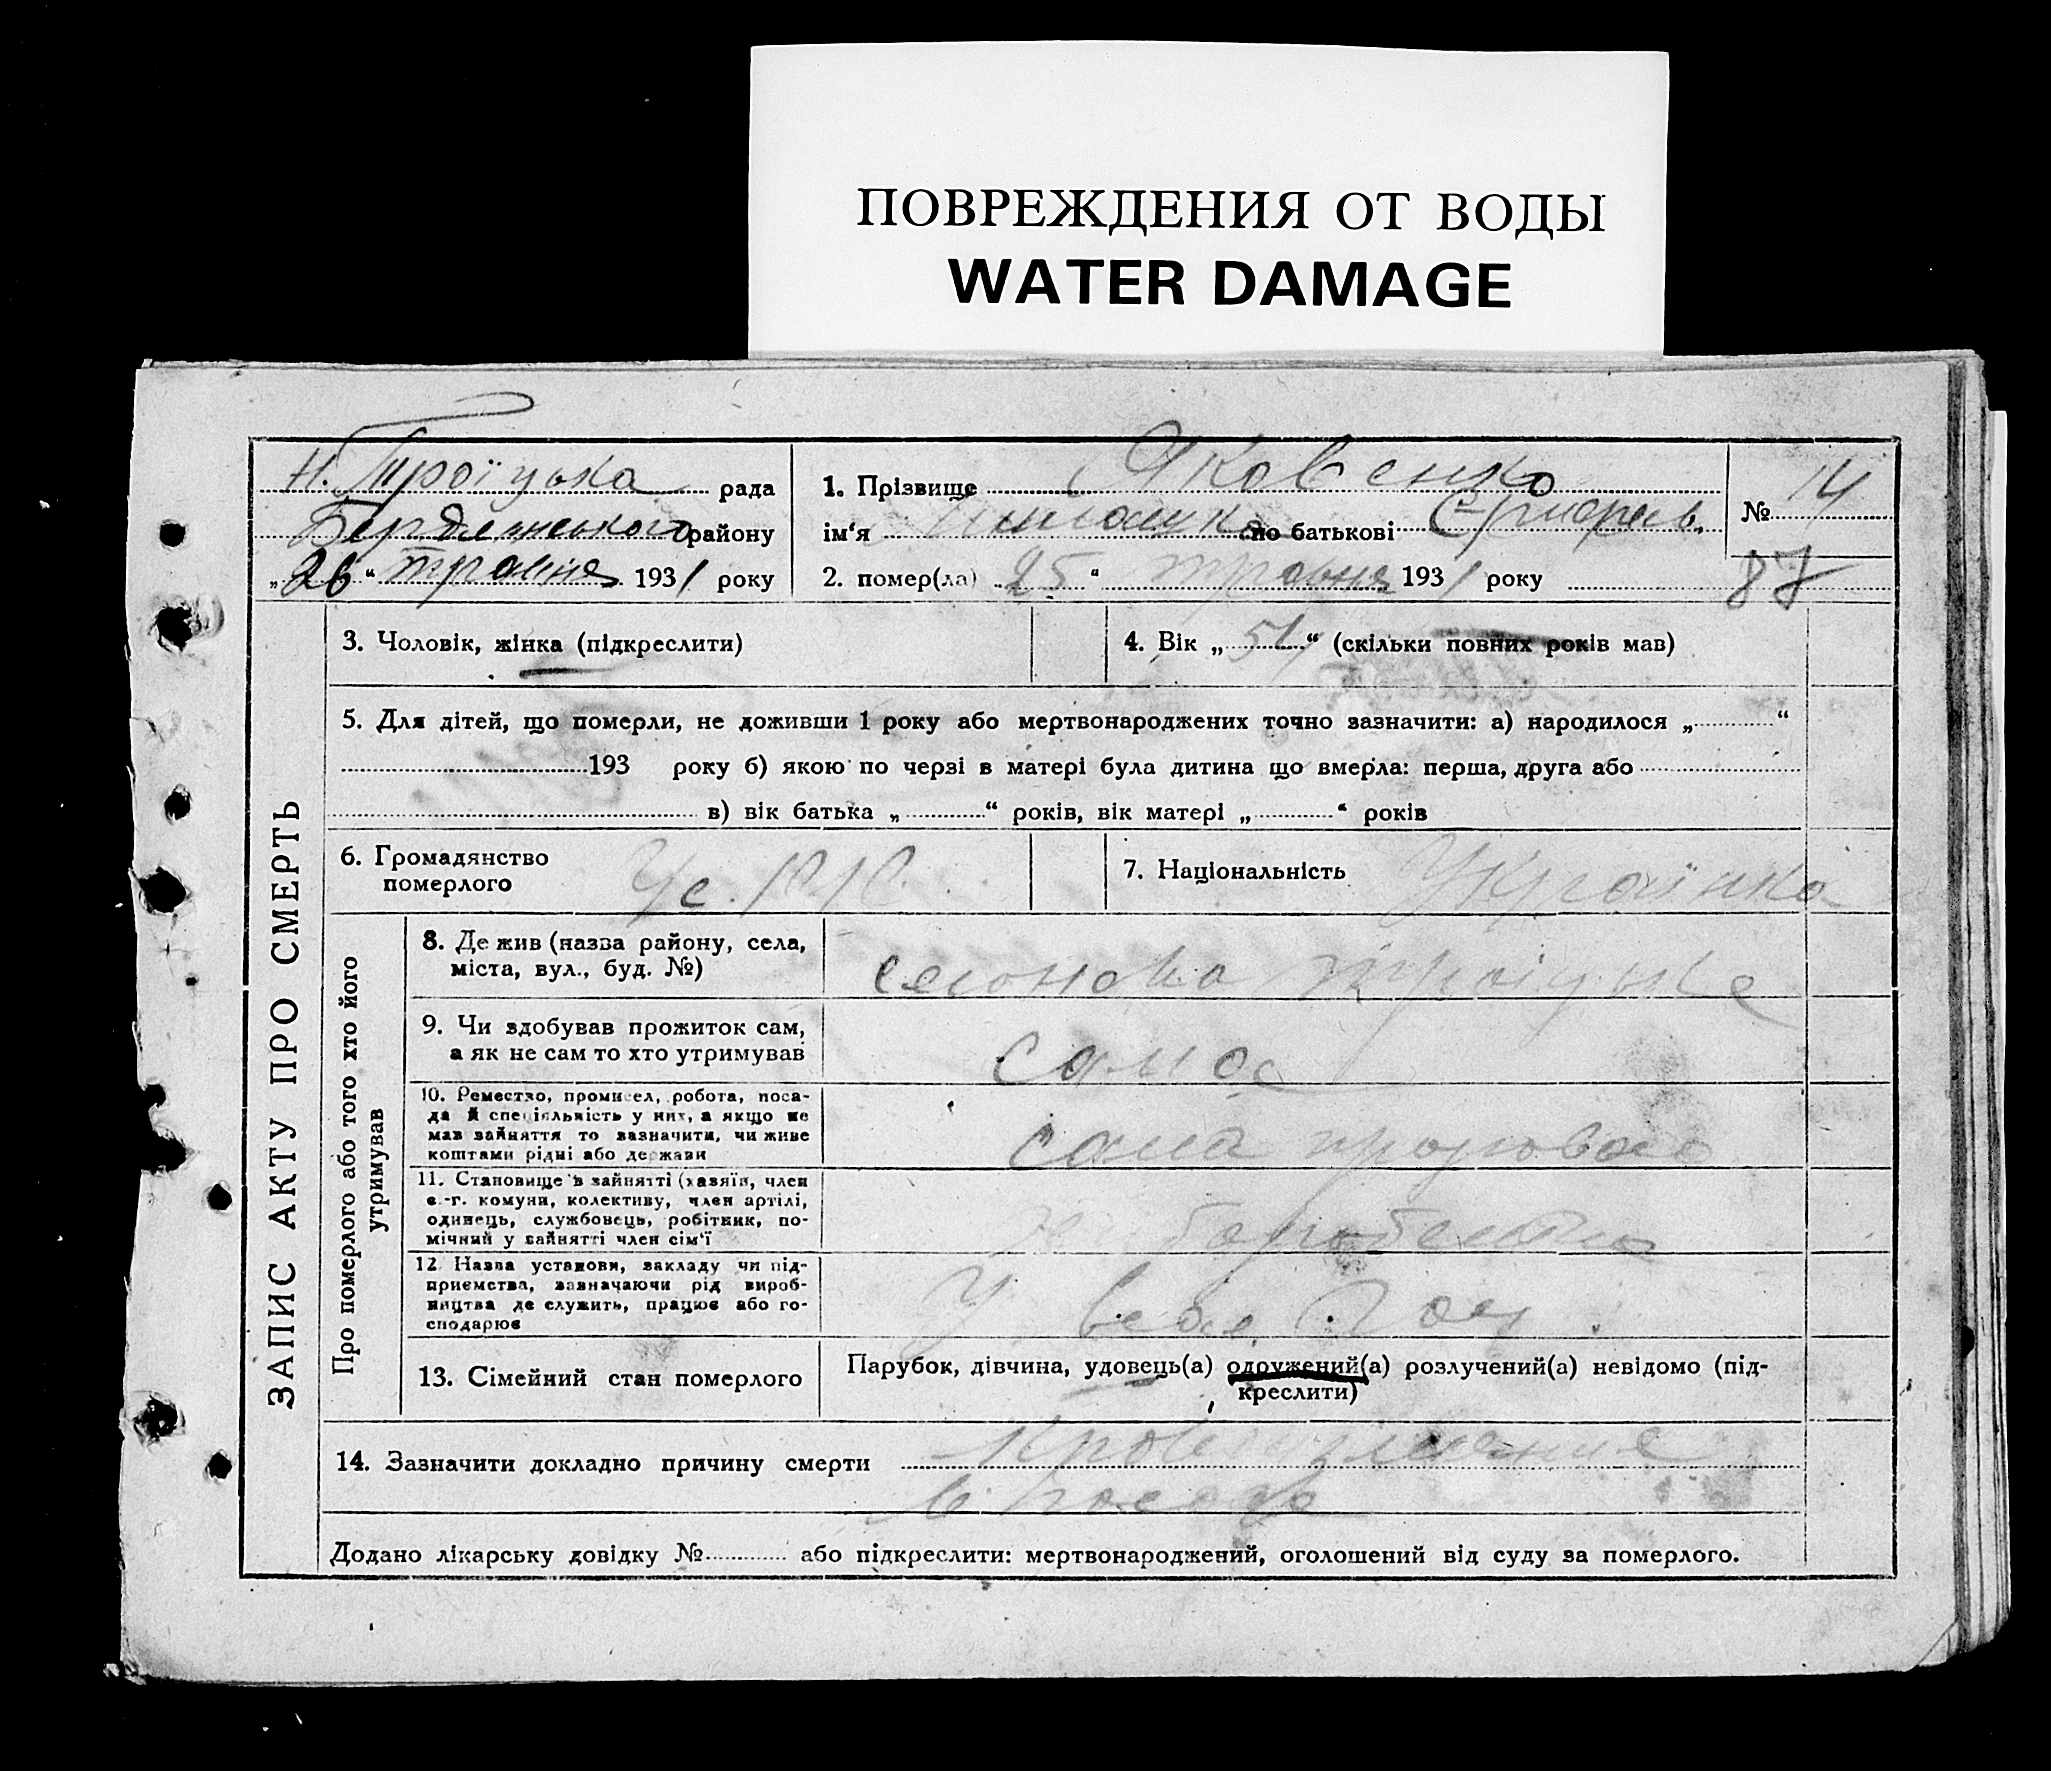 ПОВРЕЖДЕНИЯ ОТ ВОДЫ
WATER DAMAGE
Н. Троїцька рада
Бердянського району
„26“ травня 1931 року
1. Прізвище Яковенко
ім‘я по батькові
2. помер(ла) „25“ травня 1931 року
№ 14
87
ЗАПИС АКТУ ПРО СМЕРТЬ
3. Чоловік, жінка (підкреслити)
4. Вік „51“ (скільки повних років мав)
5. Для дітей, що померли, не доживши 1 року або мертвонароджених точно зазначити: а) народилося „ “
193 року б) якою по черзі в матері була дитина що вмерла: перша, друга або
в) вік батька „ “ років, вік матері „ “ років
6. Громадянство
померлого
7. Національність Українка
Про померлого або того хто його
утримував
8. Де жив (назва району, села,
міста, вул., буд. №)
9. Чи здобував прожиток сам,
а як не сам то хто утримував
сама
10. Ремество, промисел, робота, поса-
да й спеціяльність у них, а якщо не
мав зайняття то зазначити, чи живе
коштами рідні або держави
сама
11. Становище в зайнятті (хазяїн, член
с.-г. комуни, колективу, член артілі,
одинець, службовець, робітник, по-
мічний у зайнятті член сім‘ї
12. Назва установи, закладу чи під-
приємства, зазначаючи рід вироб-
ництва де служить, працює або го-
сподарює
У
13. Сімейний стан померлого
Парубок, дівчина, удовець(а) одружений(а) розлучений(а) невідомо (під-
креслити)
14. Зазначити докладно причину смерти
Додано лікарську довідку № або підкреслити: мертвонароджений, оголошений від суду за померлого.